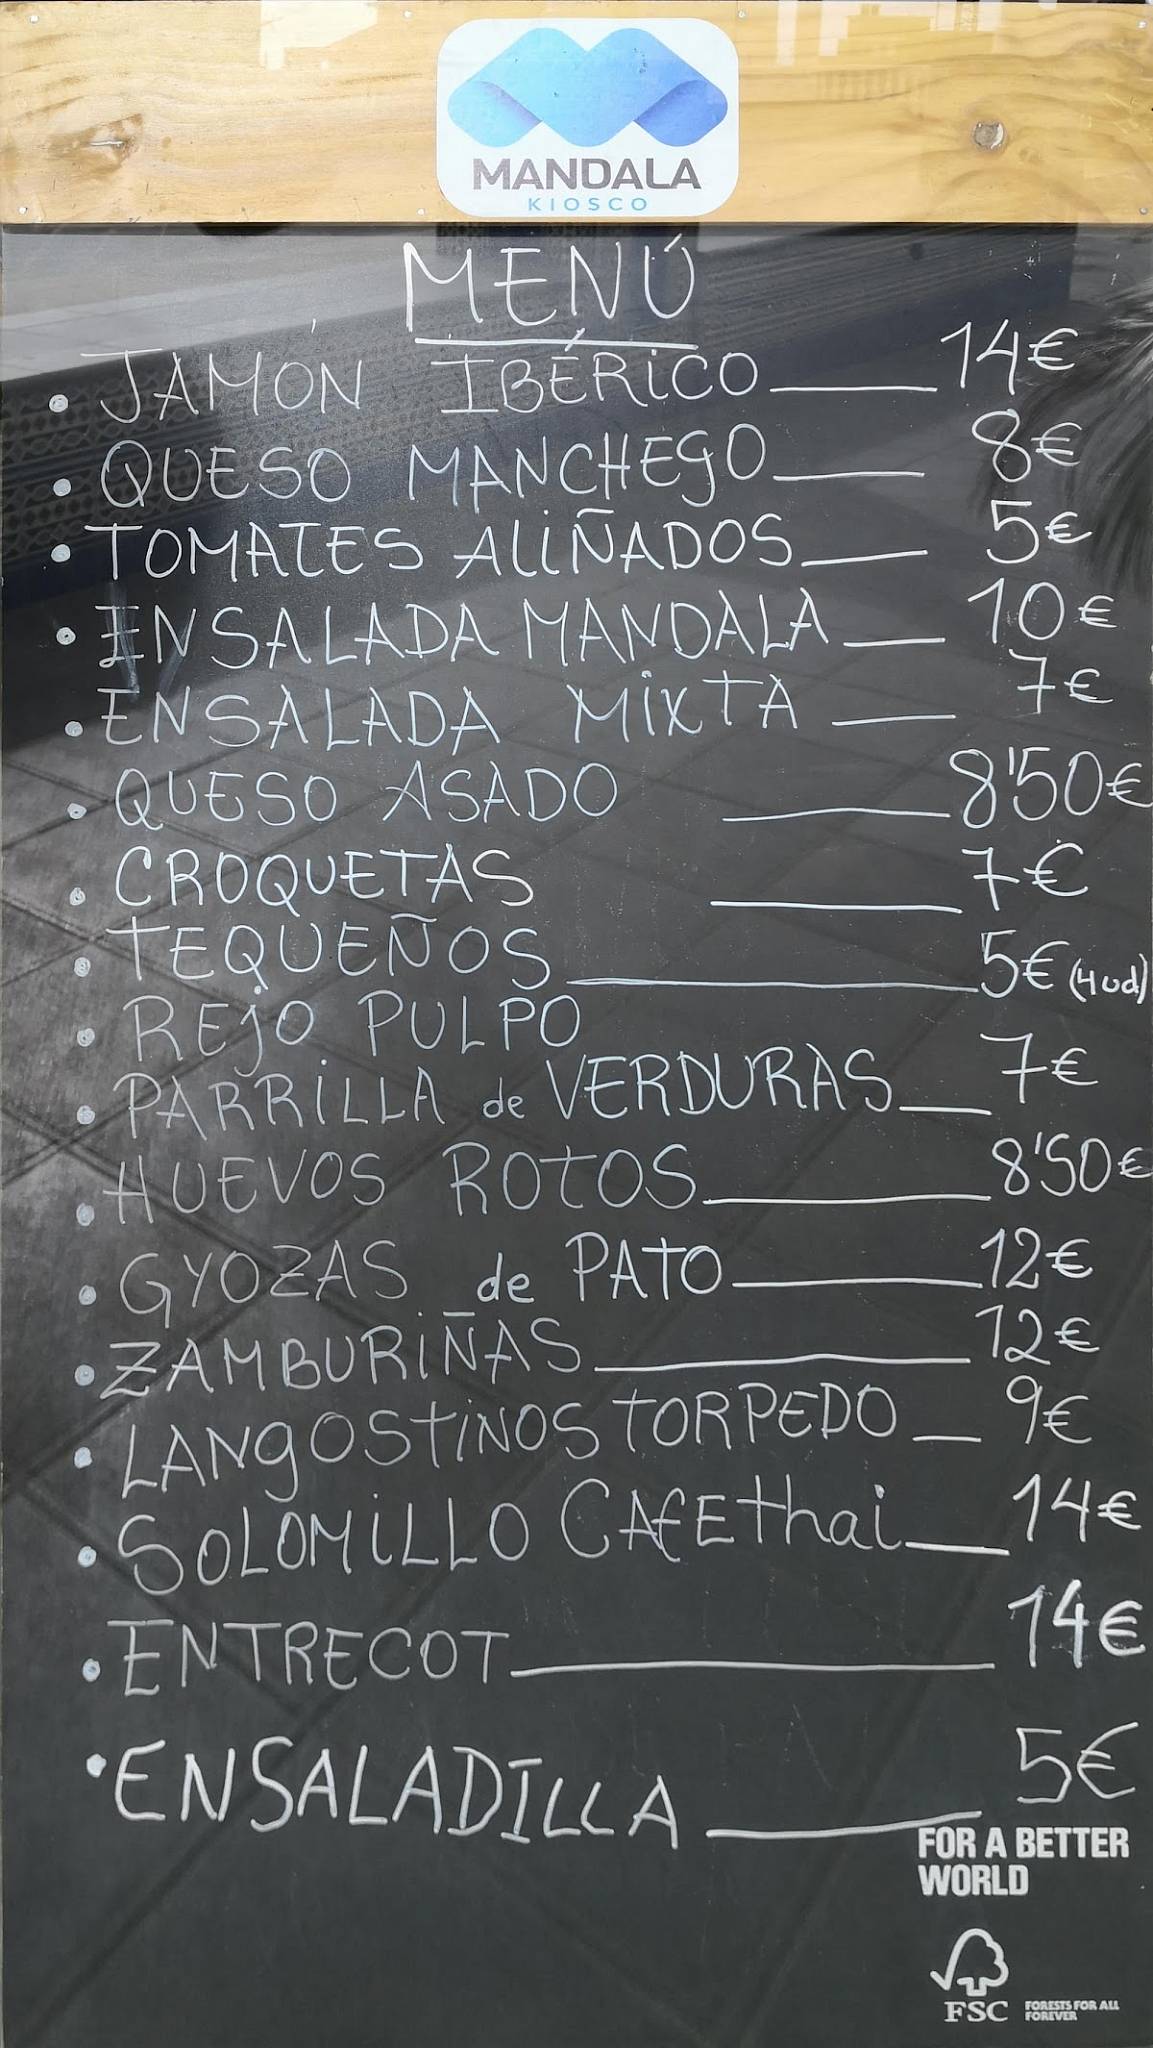 MANDALA
KIOSCO
MENÚ
• JAMÓN IBÉRICO 14€
• QUESO MANCHEGO 8€
• TOMATES ALIÑADOS 5€
• ENSALADA MANDALA 10€
• ENSALADA MIXTA 7€
• QUESO ASADO 8'50€
• CROQUETAS 7€
• TEQUEÑOS 5€ (4ud)
• REJO PULPO
• PARRILLA de VERDURAS 7€
• HUEVOS ROTOS 8'50€
• GYOZAS de PATO 12€
• ZAMBURIÑAS 12€
• LANGOSTINOS TORPEDO 9€
• SOLOMILLO CAFE thai 14€
• ENTRECOT 14€
• ENSALADILLA 5€
FOR A BETTER
WORLD
FSC
FORESTS FOR ALL
FOREVER